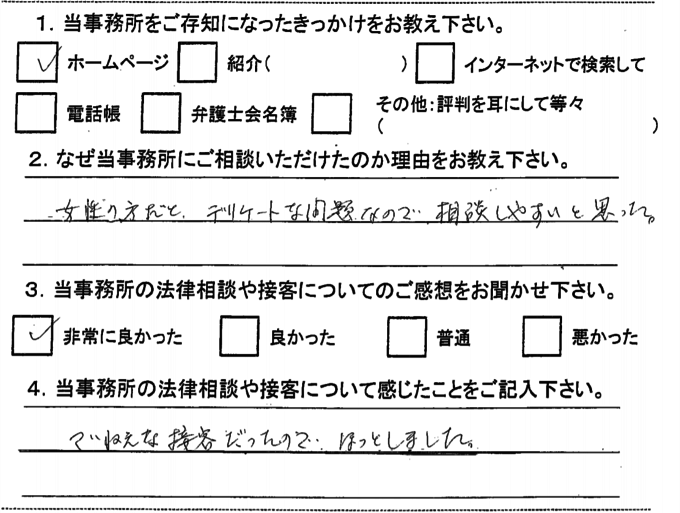 1. 当事務所をご存知になったきっかけをお教え下さい。
ホームページ 紹介( ) インターネットで検索して
電話帳 弁護士会名簿 その他:評判を耳にして等々
( )
2. なぜ当事務所にご相談いただけたのか理由をお教え下さい。
女性の方だと、デリケートな問題なので、相談しやすいと思った。
3. 当事務所の法律相談や接客についてのご感想をお聞かせ下さい。
非常に良かった 良かった 普通 悪かった
4. 当事務所の法律相談や接客について感じたことをご記入下さい。
ていねいな接客だったので、ほっとしました。